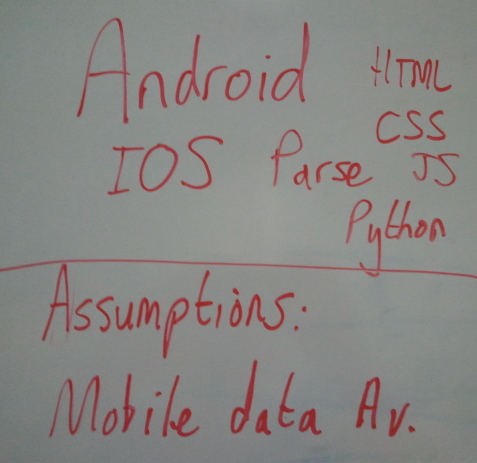 Android HTML
CSS
IOS Parse JS
Python
Assumptions:
Mobile data Av.